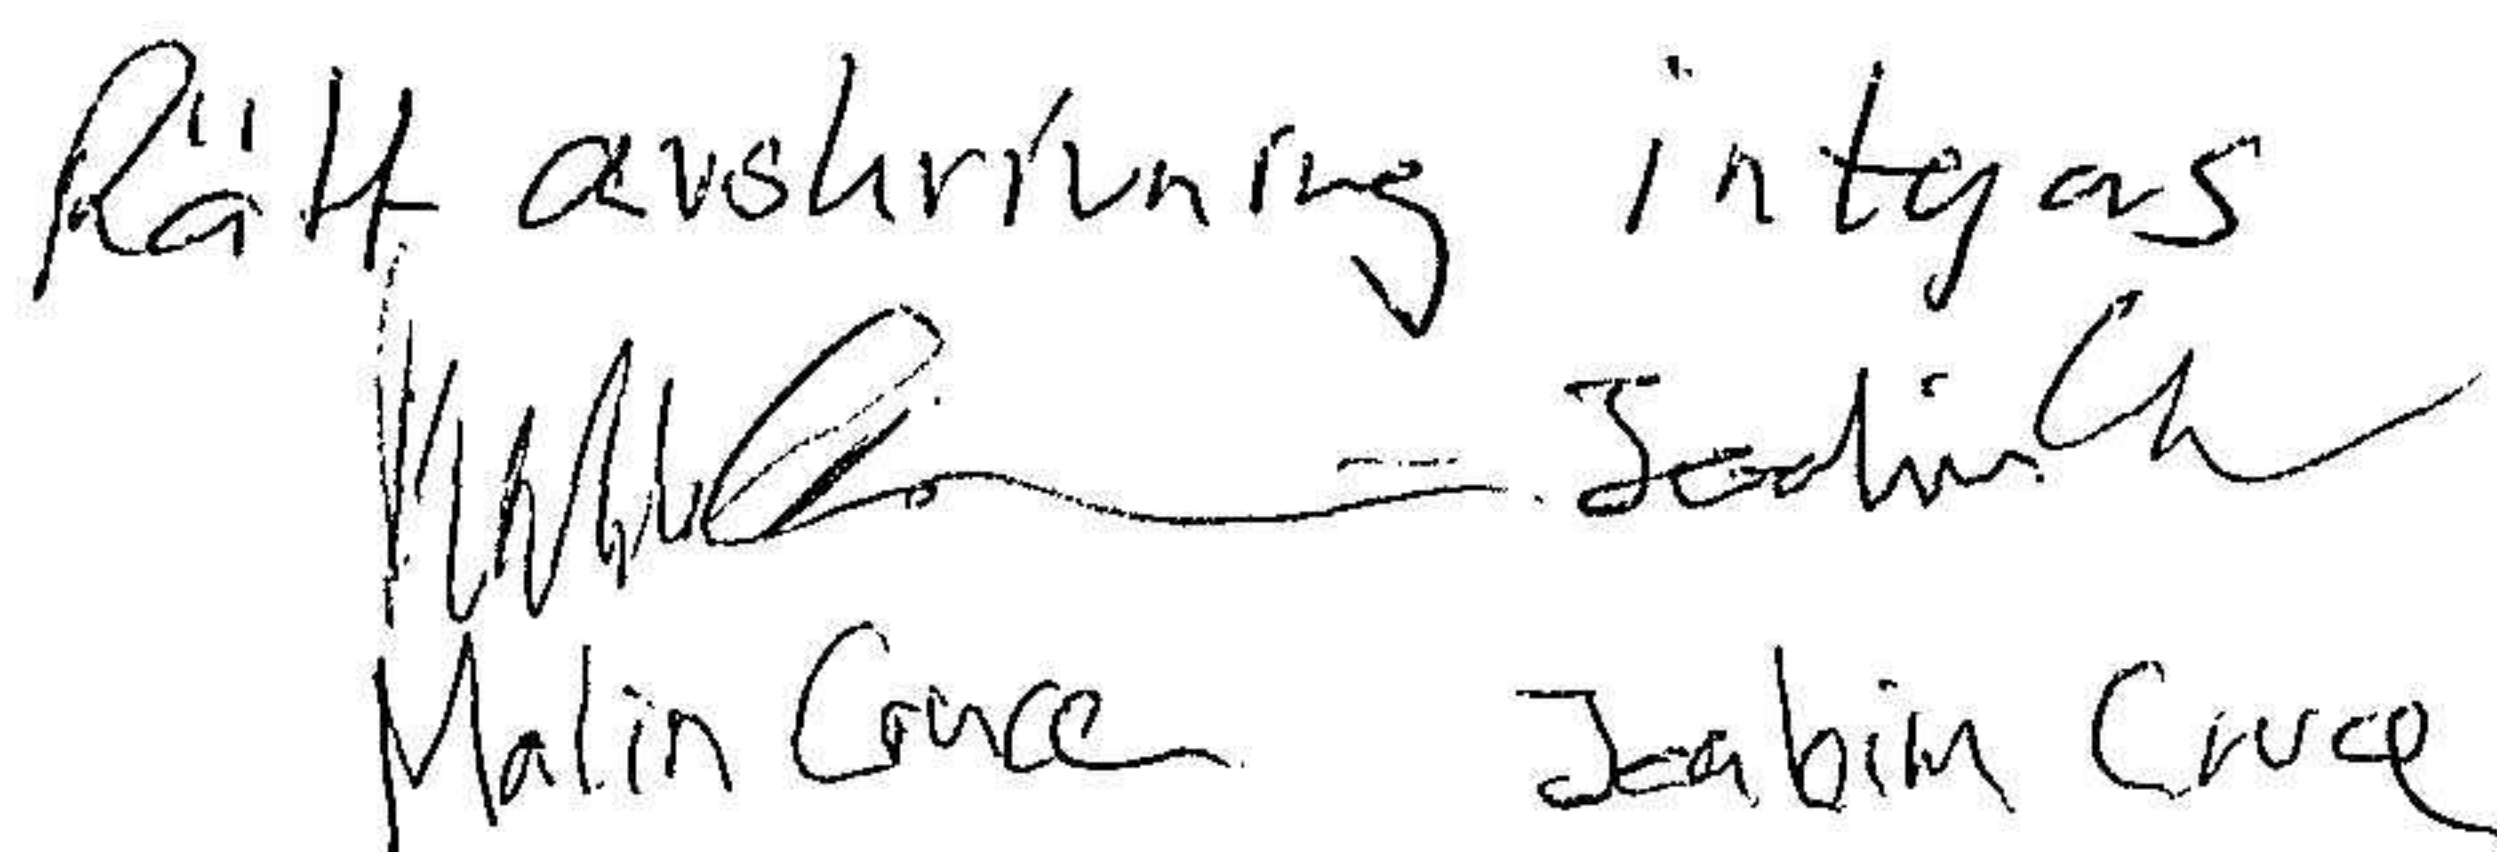 Rätt avskrivning intygas
Malin Cruce Joabim Cruce